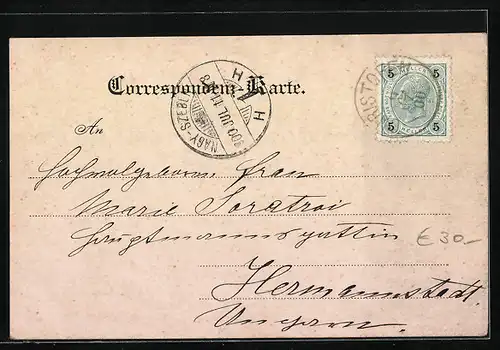 Correspondenz-Karte.
NAGY-SZEBEN
900 JUL 11
H H
5 5
5 5
An
Hochwolgeboren Frau
Marie
Hauptmannsgattin
€ 30.-
Hermannstadt
Ungarn.